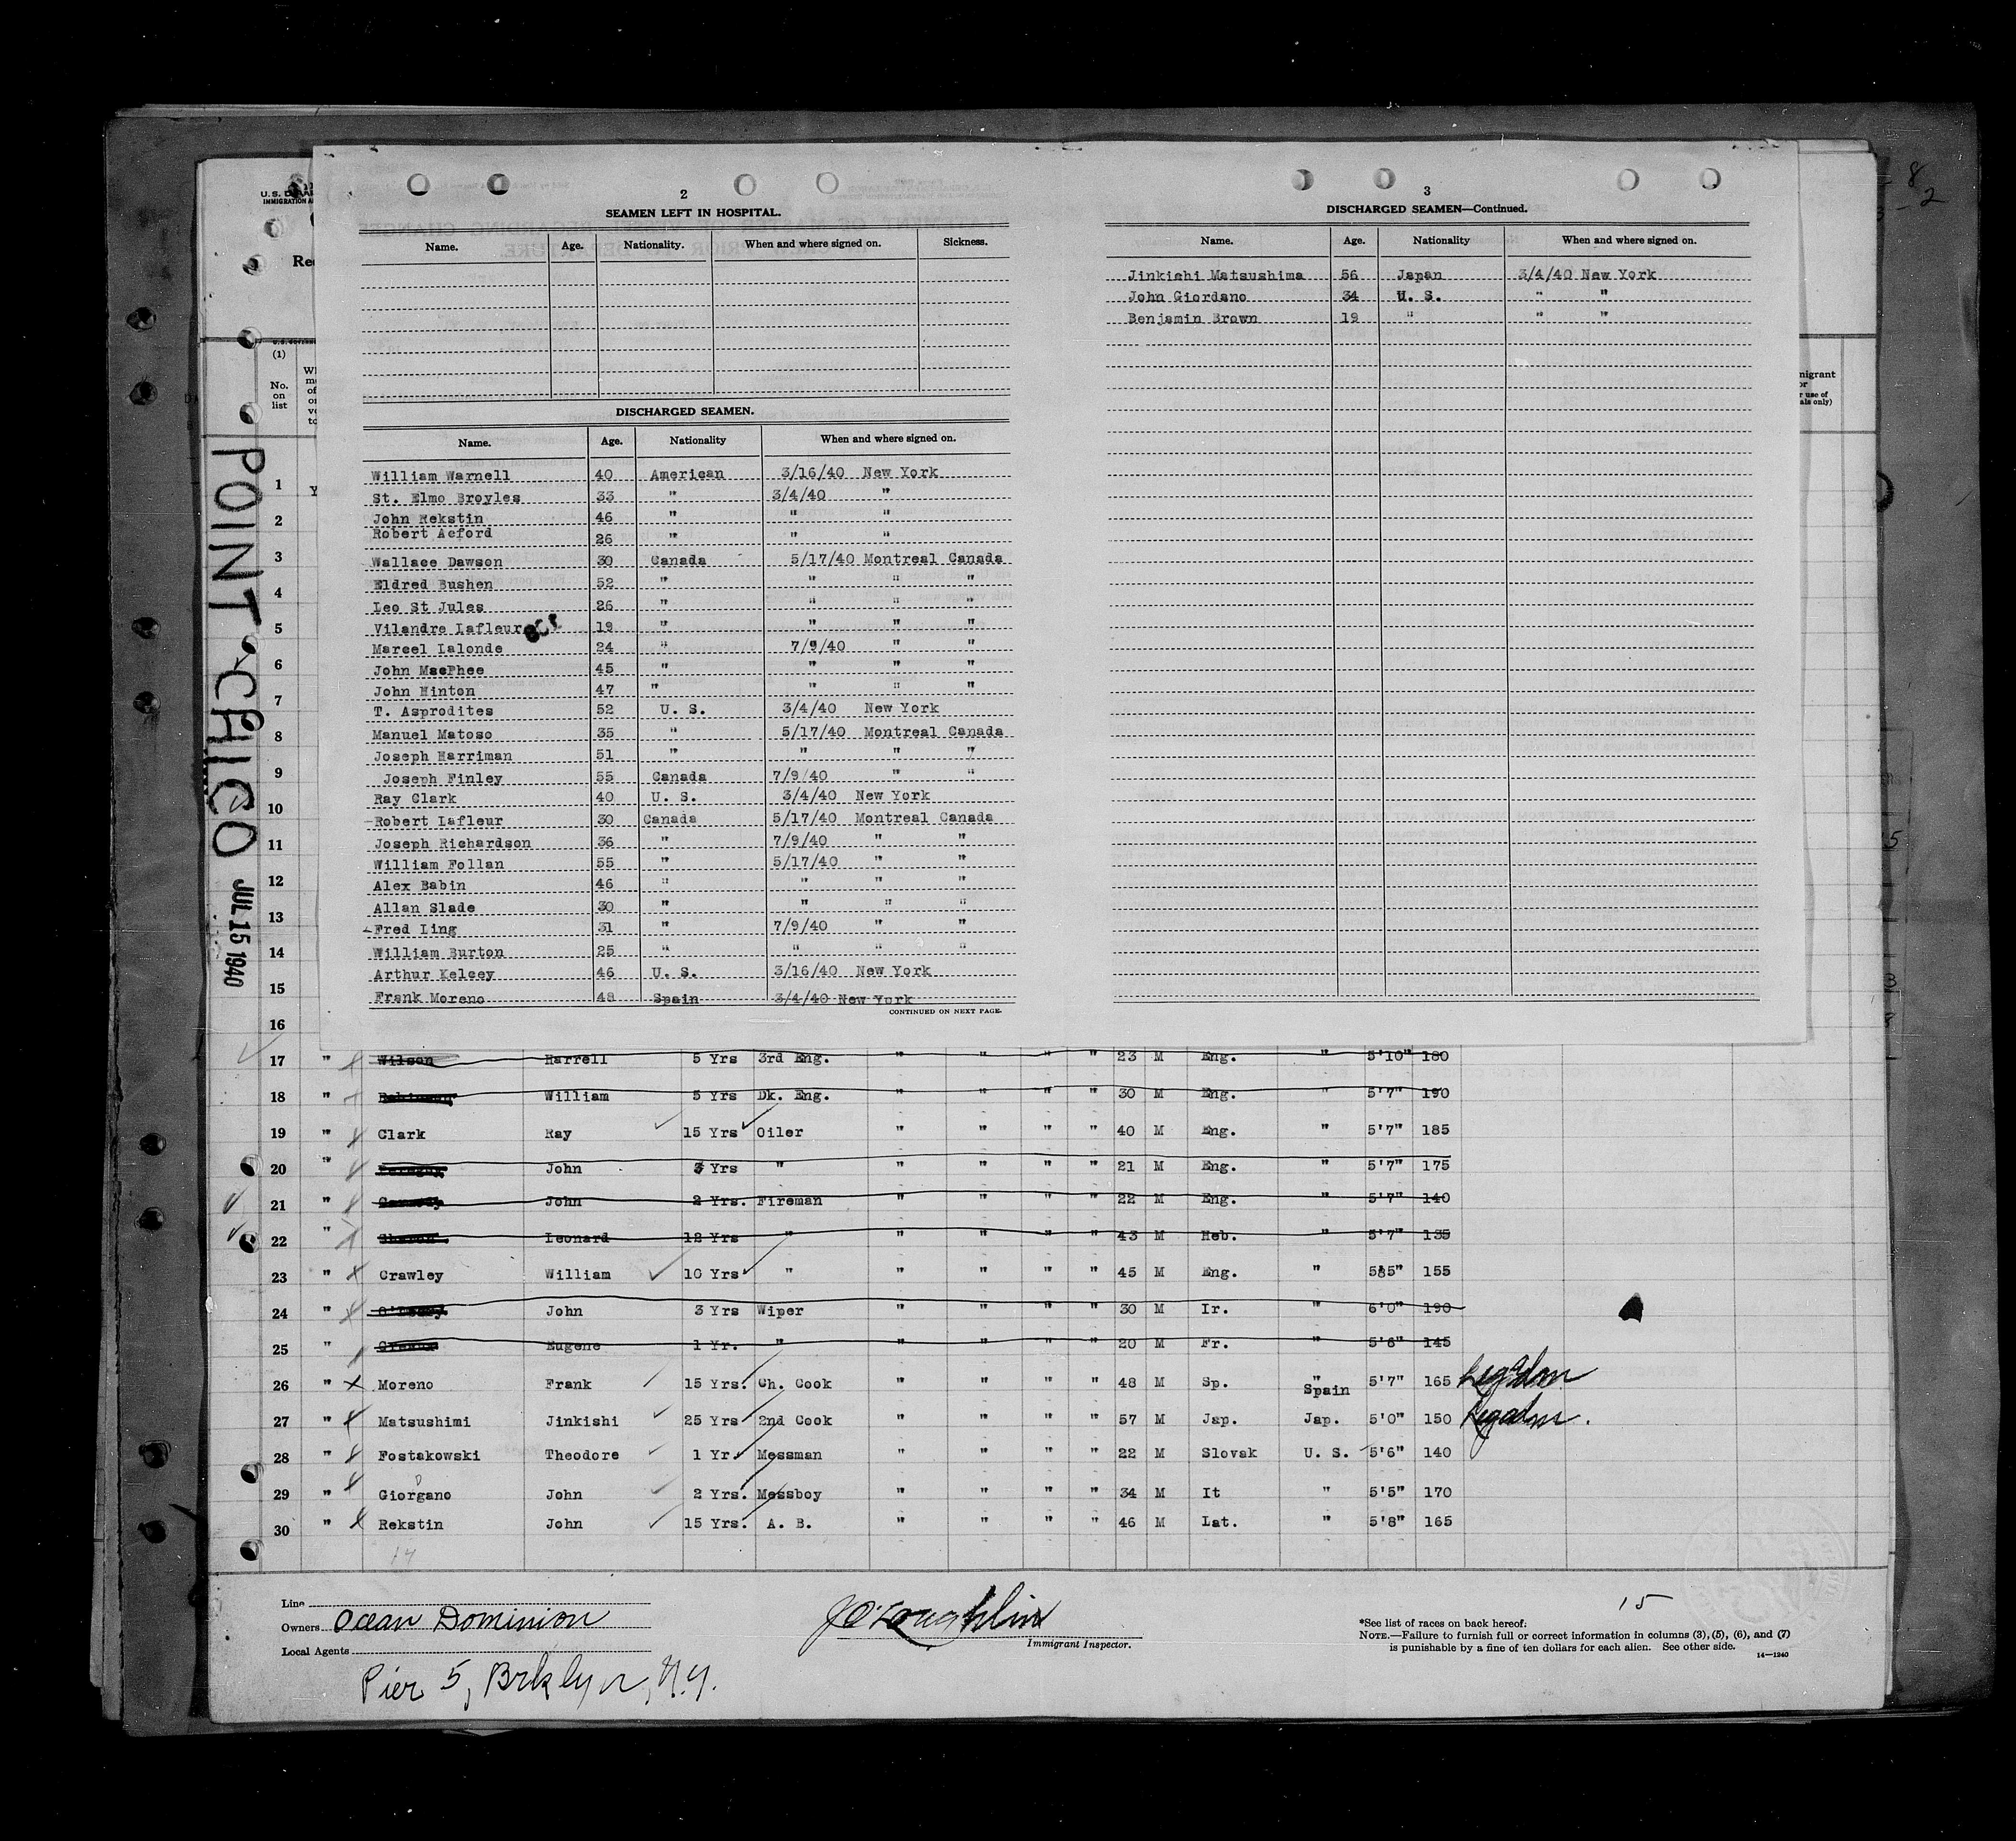 2
SEAMEN LEFT IN HOSPITAL.
Name. Age. Nationality. When and where signed on. Sickness.
DISCHARGED SEAMEN.
Name. Age. Nationality When and where signed on.
William Warnell 40 American 3/16/40 New York
St. Elmo Broyles 33 " 3/4/40 "
John Rekstin 46 " " "
Robert Acford 26 " " "
Wallace Dawson 30 Canada 5/17/40 Montreal Canada
Eldred Bushen 52 " " " "
Leo St Jules 26 " " " "
Vilandre Lafleur 19 " " " "
Marcel Lalonde 24 " 7/9/40 " "
John MacPhee 45 " " " "
John Hinton 47 " " " "
T. Asprodites 52 U. S. 3/4/40 New York
Manuel Matoso 35 " 5/17/40 Montreal Canada
Joseph Harriman 51 " " " "
Joseph Finley 55 Canada 7/9/40 " "
Ray Clark 40 U. S. 3/4/40 New York
Robert Lafleur 30 Canada 5/17/40 Montreal Canada
Joseph Richardson 36 " 7/9/40 " "
William Follan 55 " 5/17/40 " "
Alex Babin 46 " " " "
Allan Slade 30 " " " "
Fred Ling 31 " 7/9/40 " "
William Burton 25 " " " "
Arthur Kelcey 46 U. S. 3/16/40 New York
Frank Moreno 48 Spain 3/4/40 New York
CONTINUED ON NEXT PAGE.
3
DISCHARGED SEAMEN—Continued.
Name. Age. Nationality When and where signed on.
Jinkichi Matsushima 56 Japan 3/4/40 New York
John Giordano 34 U. S. " "
Benjamin Brown 19 " " "
(1)
No.
on
list
POINT CHICO
JUL 15 1940
1
2
3
4
5
6
7
8
9
10
11
12
13
14
15
16
17 " Wilson Harrell 5 Yrs 3rd Eng. " " " " 23 M Eng. " 5'10" 180
18 " William 5 Yrs Dk. Eng. " " " " 30 M Eng. " 5'7" 190
19 " Clark Ray 15 Yrs Oiler " " " " 40 M Eng. " 5'7" 185
20 " John 3 Yrs " " " " " 21 M Eng. " 5'7" 175
21 " John 2 Yrs. Fireman " " " " 22 M Eng. " 5'7" 140
22 " Leonard 12 Yrs " " " " " 43 M Heb. " 5'7" 135
23 " Crawley William 10 Yrs " " " " " 45 M Eng. " 5'5" 155
24 " John 3 Yrs Wiper " " " " 30 M Ir. " 6'0" 190
25 " Eugene 1 Yr. " " " " " 20 M Fr. " 5'6" 145
26 " Moreno Frank 15 Yrs. Ch. Cook " " " " 48 M Sp. " Spain 5'7" 165 Legadm
27 " Matsushimi Jinkishi 25 Yrs 2nd Cook " " " " 57 M Jap. Jap. 5'0" 150 Legadm.
28 " Fostakowski Theodore 1 Yr. Messman " " " " 22 M Slovak U. S. 5'6" 140
29 " Giorgano John 2 Yrs. Messboy " " " " 34 M It " 5'5" 170
30 " Rekstin John 15 Yrs. A. B. " " " " 46 M Lat. " 5'8" 165
14
15
Line
Owners Ocean Dominion
Local Agents
Pier 5, Brklyn, N.Y.
J O'Loughlin
Immigrant Inspector.
*See list of races on back hereof.
NOTE.—Failure to furnish full or correct information in columns (3), (5), (6), and (7)
is punishable by a fine of ten dollars for each alien. See other side.
14—1240